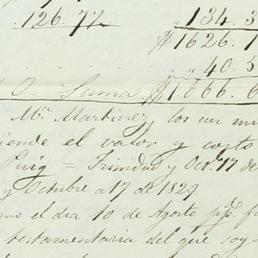 126.77 134.3
$1626.1
" 40.5
O. Suma $1666.6
Mr. Martinez los un mi
iende el valor y costo
Puig = Trinidad y Oct. 17 de
y Octubre a 17 de 1829
mo el dia 10 de Agosto pp. f
testamentaria del que soy